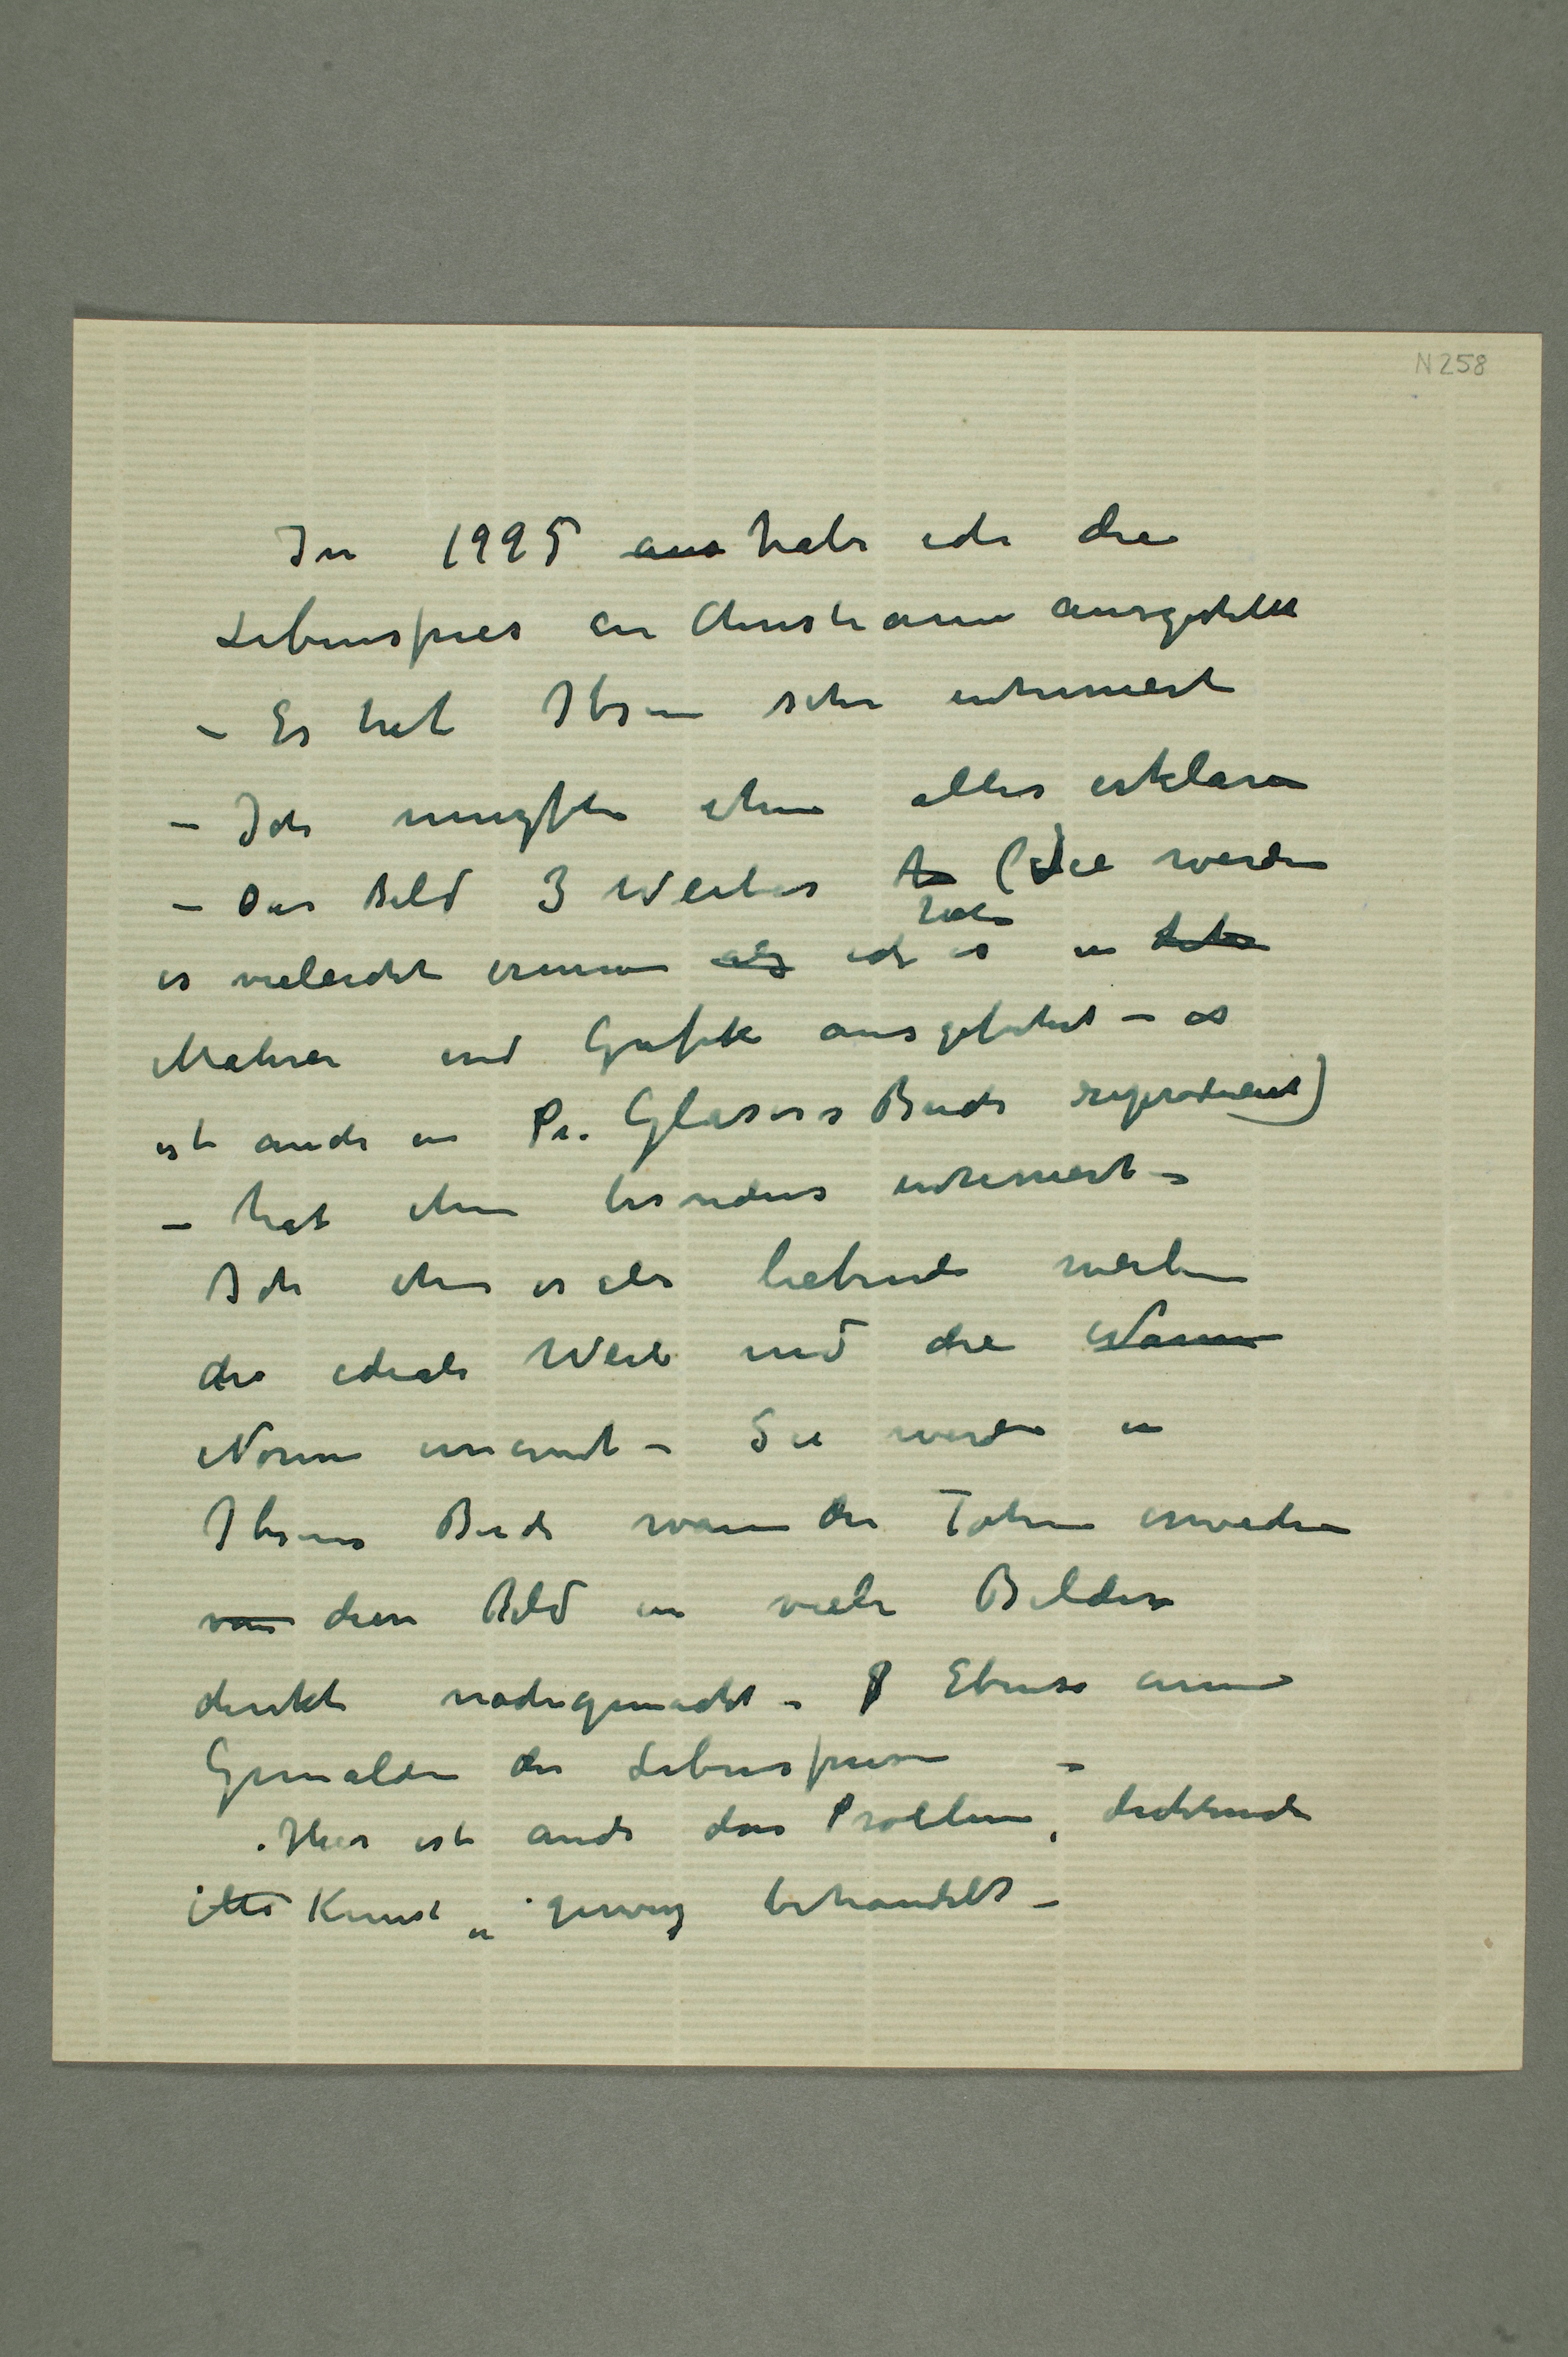 N 258
In 1995 aus habe ich die
Lebensfries in Christiania ausgestellt
– Es hat Ibsen sehr intressiert
– Ich muszte ihm alles erklären
– Das Bild 3 Weiber (Sie werden
habe
es vieleicht erinnern als ich es in
Malerei und Grafik ausgeführt – es
ist auch in Pr. Glasers Buch reproduciert)
– hat ihm besonders intressiert –
Ich ihm es als liebende weib
die ideale Weib und die Nonne
Nonne – Sie werden in
Ibsens Buch wann die Toten erwachen
von diese Bild in viele Bilder
direkt nachgemacht – Ebenso
Gemälden der Lebensfriesen –
. Hier ist auch das Problem, dichtende
Kunst " genug behandelt –